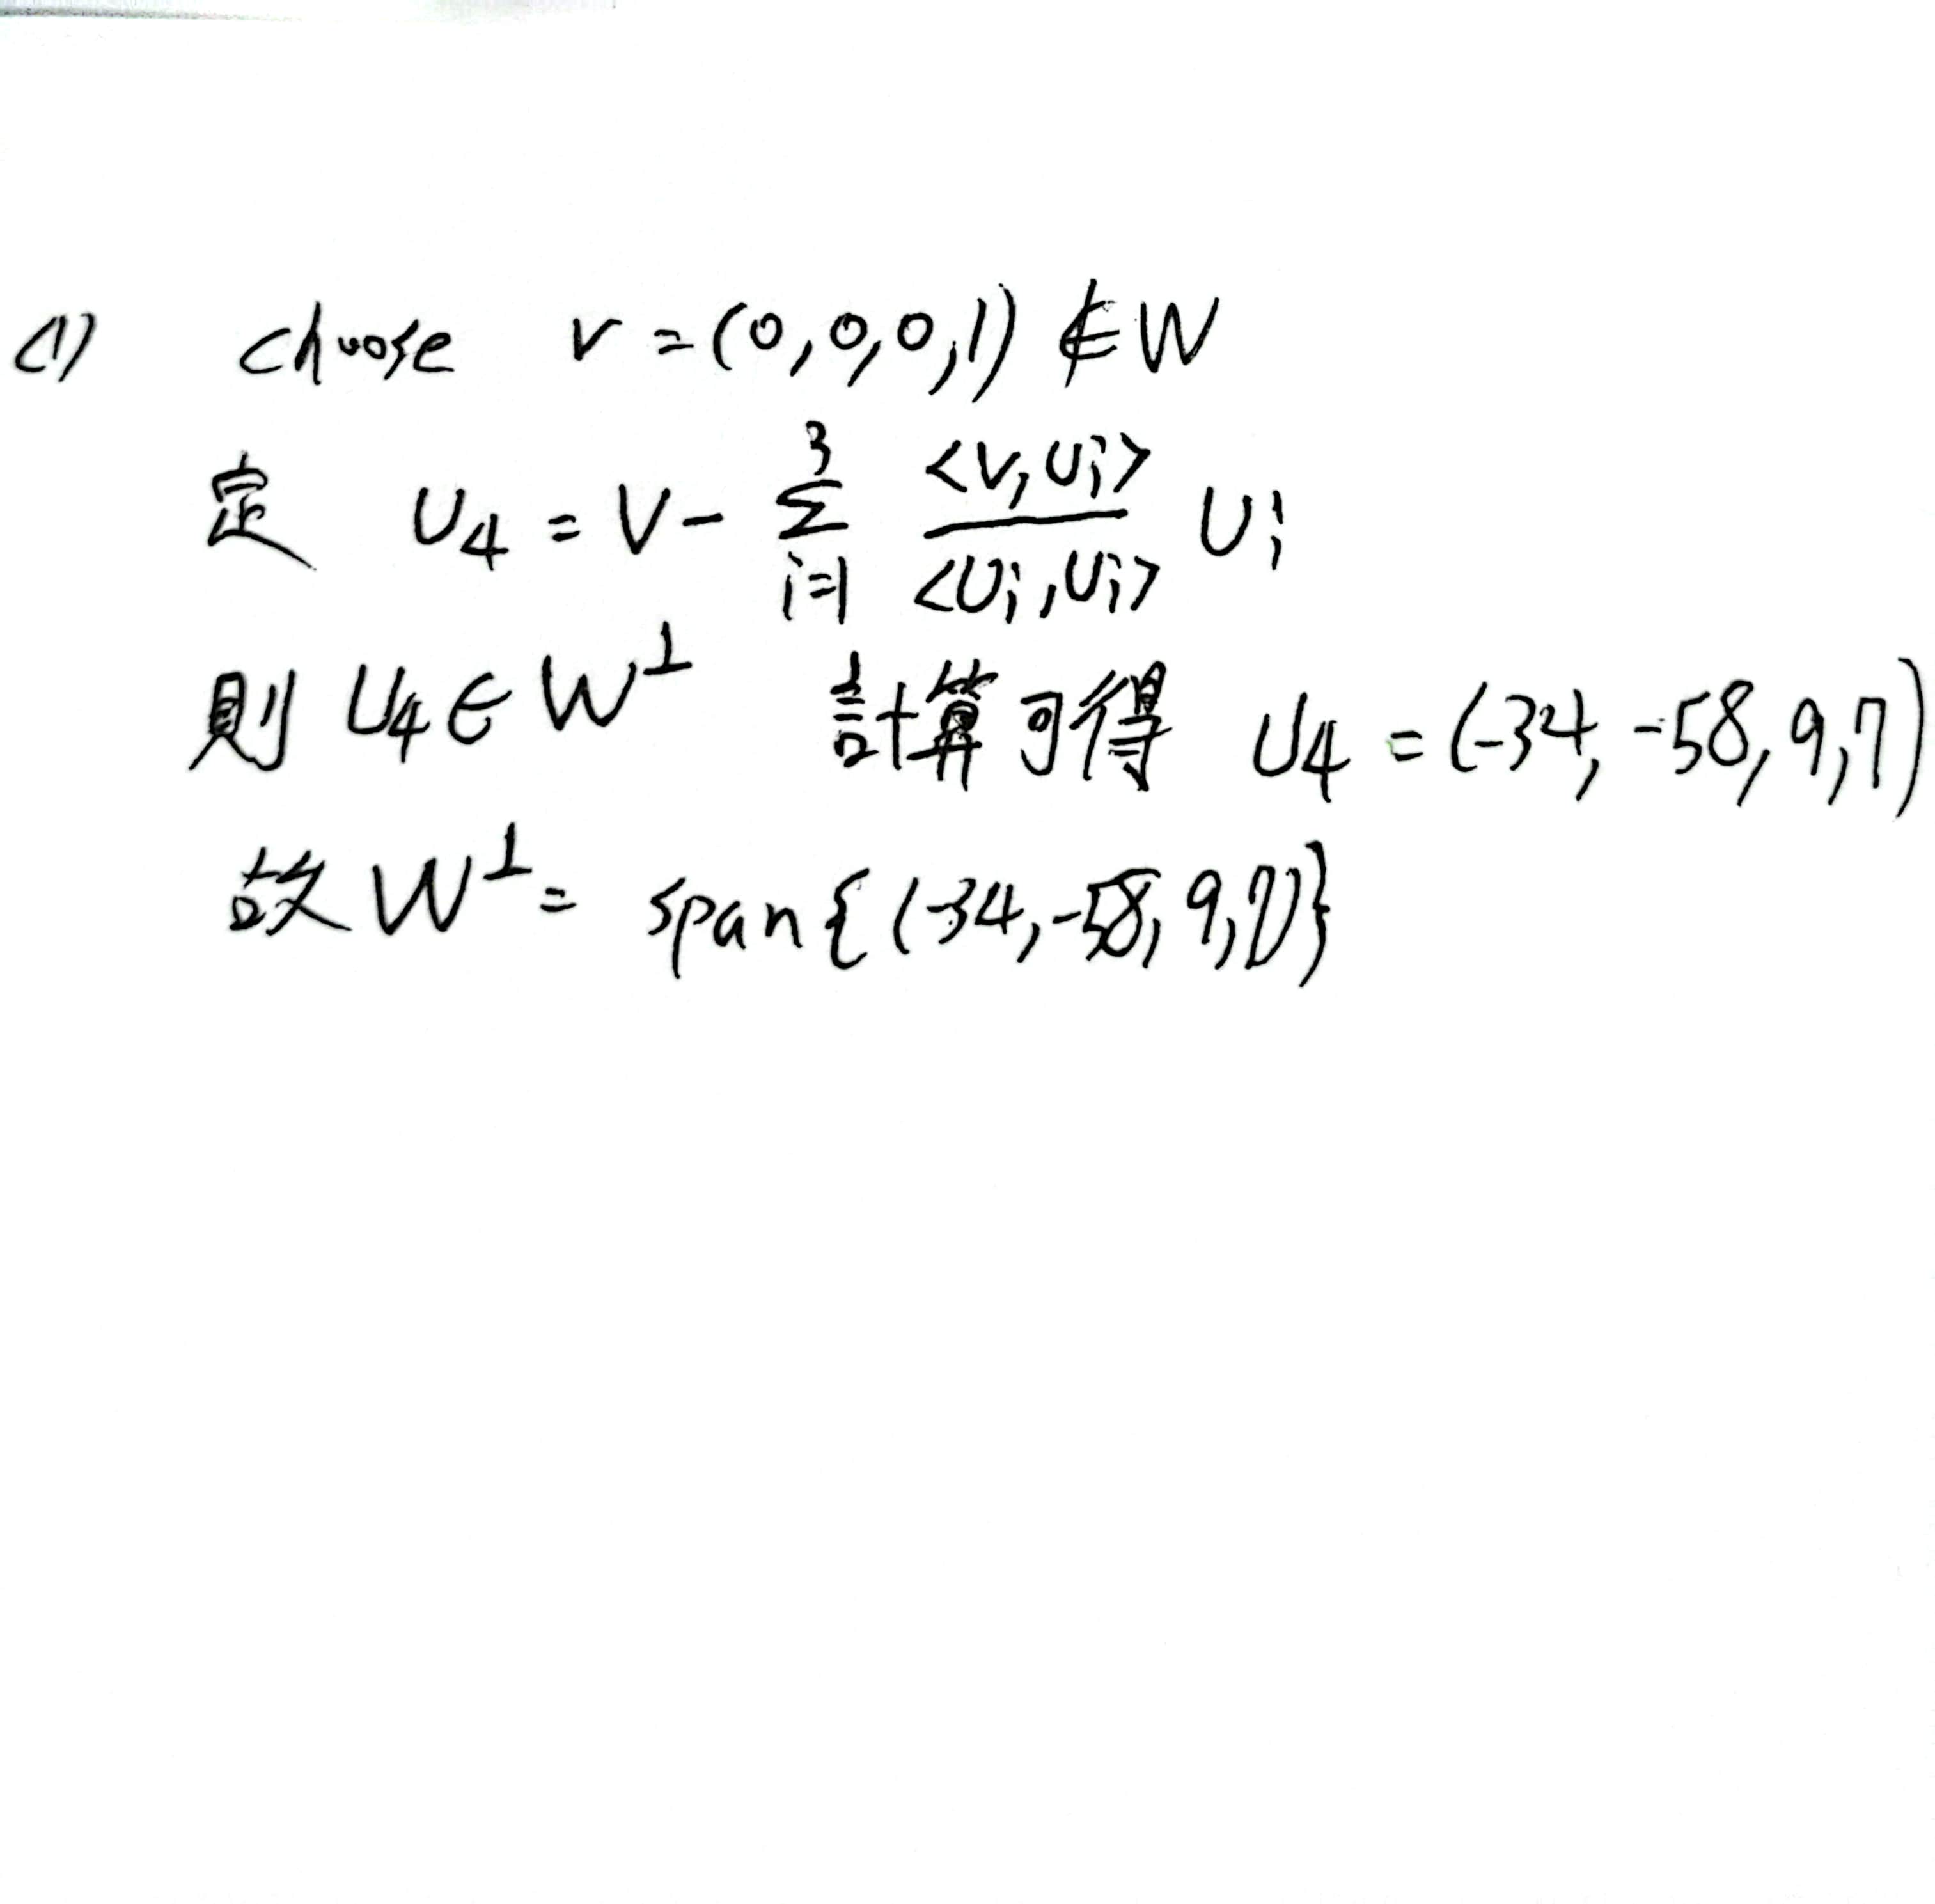 (1) choose v = (0,0,0,1) ∉ W
定 U₄ = V - \sum_{i=1}^{3} \frac{<V,U_i>}{<U_i,U_i>} U_i
則 U₄ ∈ W^⊥ 計算可得 U₄ = (-34, -58, 9, 7)
故 W^⊥ = span{(-34, -58, 9, 7)}